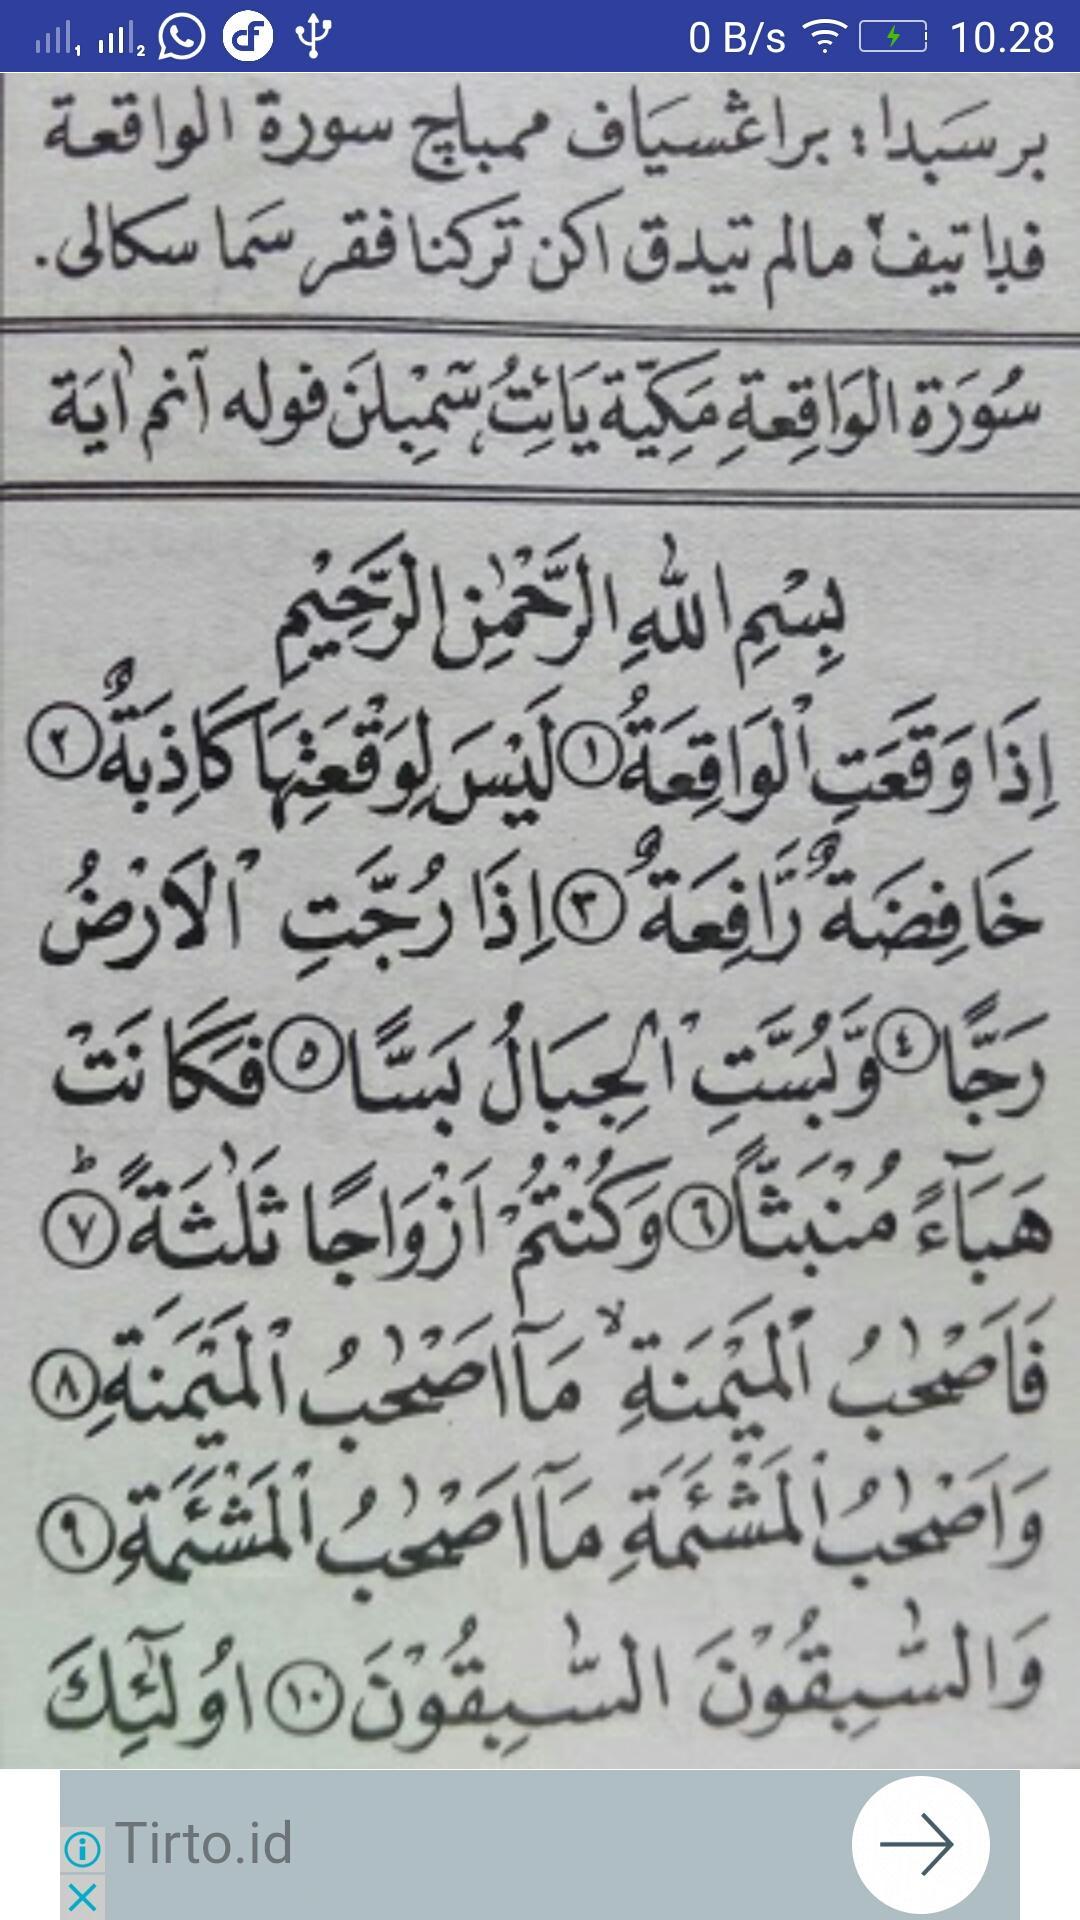 0 B/s 10.28
برسبدا؛ براڠسياف ممباچ سورة الواقعة
فداتيف٢ مالم تيدق اكن تركنا فقر سَما سكالى.
سُورَة الوَاقِعةِ مَكِيّة يَائِتُ، سٓمْبِلَن فوله آنم اٰيَة
بِسْمِ اللهِ الرَّحْمٰنِ الرَّحِيْمِ
اِذَا وَقَعَتِ الْوَاقِعَةُ ١ لَيْسَ لِوَقْعَتِهَا كَاذِبَةٌ ٢
خَافِضَةٌ رَّافِعَةٌ ٣ اِذَا رُجَّتِ الْاَرْضُ
رَجًّا ٤ وَّبُسَّتِ الْجِبَالُ بَسًّا ٥ فَكَانَتْ
هَبَآءً مُنْبَثًّا ٦ وَكُنْتُمْ اَزْوَاجًا ثَلٰثَةً ط ٧
فَاَصْحٰبُ الْمَيْمَنَةِ لا مَآ اَصْحٰبُ الْمَيْمَنَةِ ٨
وَاَصْحٰبُ الْمَشْئَمَةِ مَآ اَصْحٰبُ الْمَشْئَمَةِ ٩
وَالسّٰبِقُوْنَ السّٰبِقُوْنَ ١٠ اُولٰٓئِكَ
Tirto.id